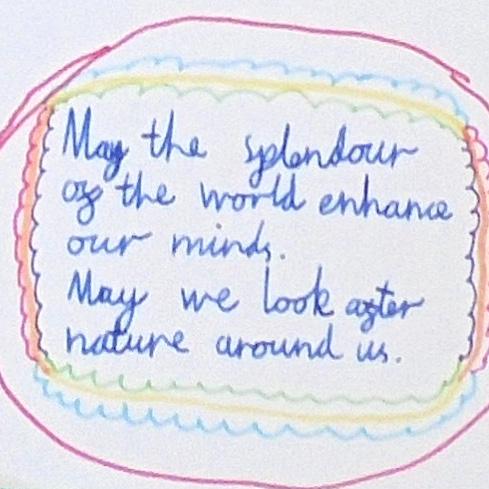 May the splendour
of the world enhance
our minds.
May we look after
nature around us.